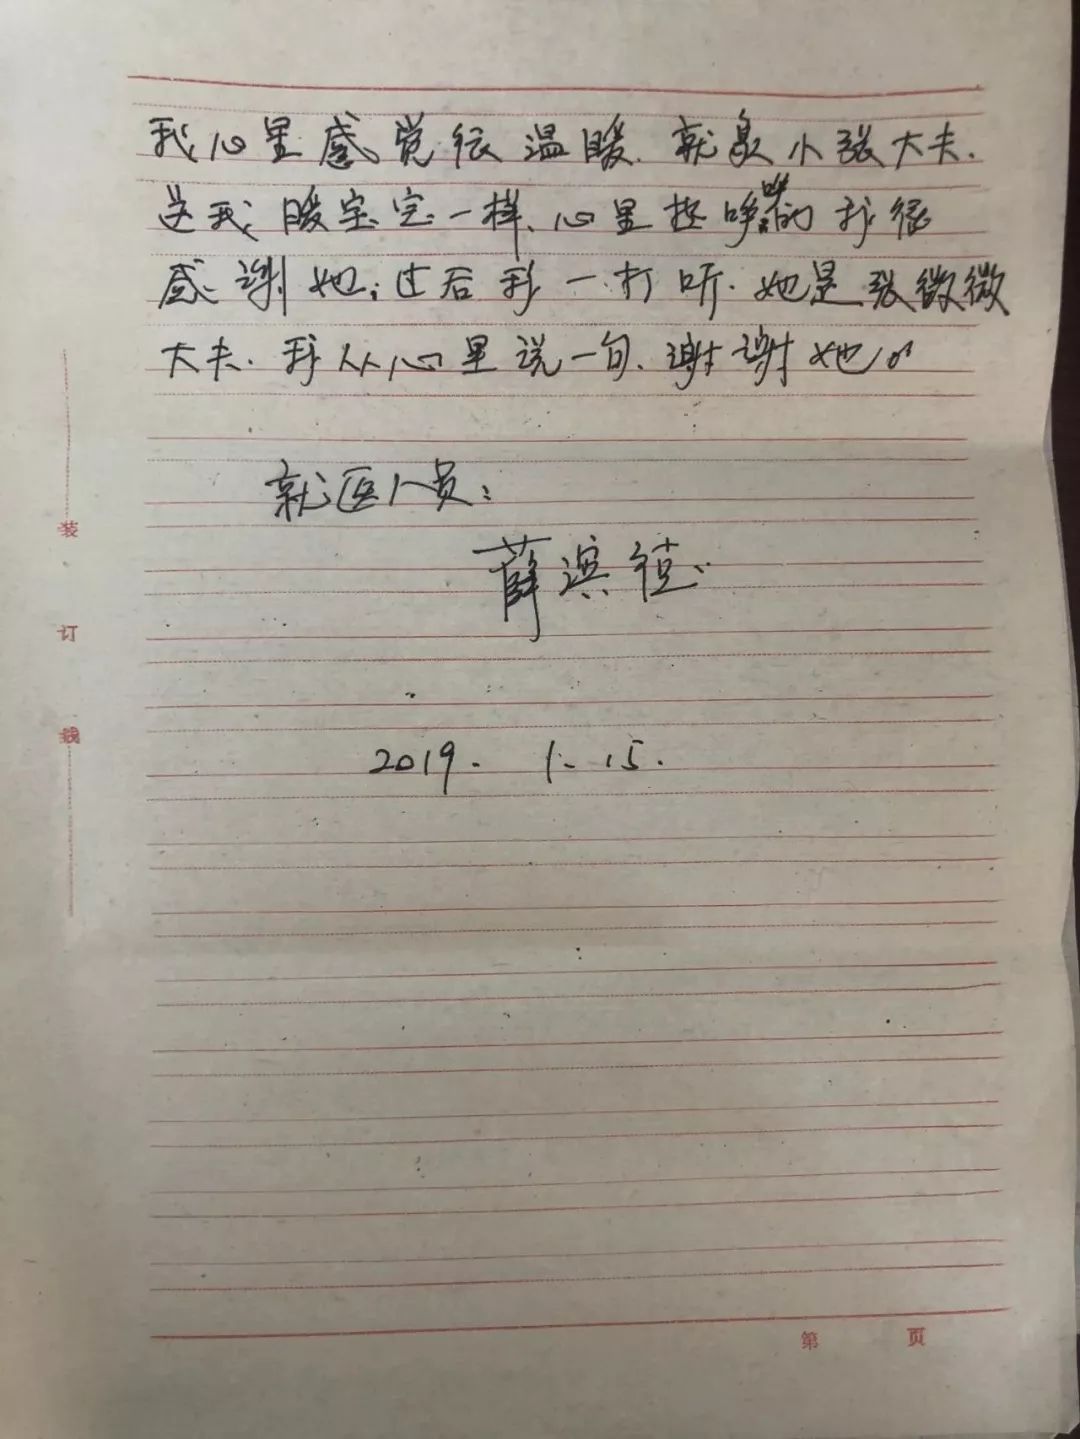 我心里感觉很温暖.就象小张大夫.
送我暖宝宝一样、心里热哄哄的我很
感谢她;过后我一打听.她是张微微
大夫.我从心里说一句.谢谢她。
就医人员:
薛滨德.
2019. 1. 15.
装
订
线
第 页